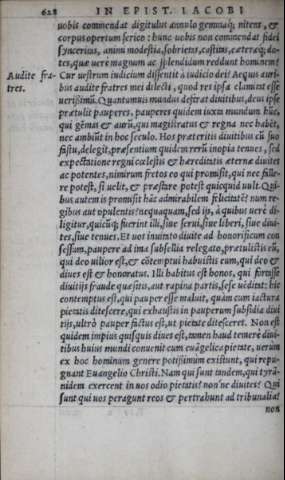 628 IN EPIST. IACOBI
uobis commendat digitulus annulo gemmaq́; nitens, &
corpus opertum serico: hunc uobis non commendat fidei
synceritas, animi modestia, sobrietas, castitas, cæteræq́; do-
tes, quæ uerè magnum ac splendidum reddunt hominem?
Audite fra- Cur uestrum iudicium dissentit à iudicio dei? Aequis auri-
tres. bus audite fratres mei dilecti, quod res ipsa clamitat esse
uerissimũ. Quantumuis mundus deferat diuitibus, deus ipse
prætulit pauperes, pauperes quidem iuxta mundum hũc,
qui gẽmas & aurũ, qui magistratus & regna nec habẽt,
nec ambiũt in hoc seculo. Hos præteritis diuitibus cũ suo
fastu, delegit, præsentium quidem rerũ inopia tenues, sed
expectatione regni cœlestis & hæreditatis æternæ diuites
ac potentes, nimirum fretos eo qui promisit, qui nec falle-
re potest, si uelit, & præstare potest quicquid uult. Qui-
bus autem is promisit hãc admirabilem felicitatẽ? num re-
gibus aut opulentis? nequaquam, sed ijs, à quibus uerè di-
ligitur, quicũq́; fuerint illi, siue serui, siue liberi, siue diui-
tes, siue tenues. Et uos inuito diuite ad honorificam con
sessum, paupere ad ima subsellia relegato, prætulistis eũ,
qui deo uilior est, & cõtemptui habuistis eum, qui deo &
diues est & honoratus. Illi habitus est honos, qui fortasse
diuitijs fraude quæsitis, aut rapina partis, sese uẽdit: hic
contemptus est, qui pauper esse maluit, quàm cum iactura
pietatis ditescere, qui exhaustis in pauperum subsidia diui
tijs, ultrò pauper factus est, ut pietate ditesceret. Non est
quidem impius quisquis diues est, tamen haud temerè diui-
tibus huius mundi conuenit cum euãgelica pietate, uerùm
ex hoc hominum genere potissimum existunt, qui repu-
gnant Euangelio Christi. Nam qui sunt tandem, qui tyrã-
nidem exercent in uos odio pietatis? nonne diuites? Qui
sunt qui uos peragunt reos & pertrahunt ad tribunalia?
non